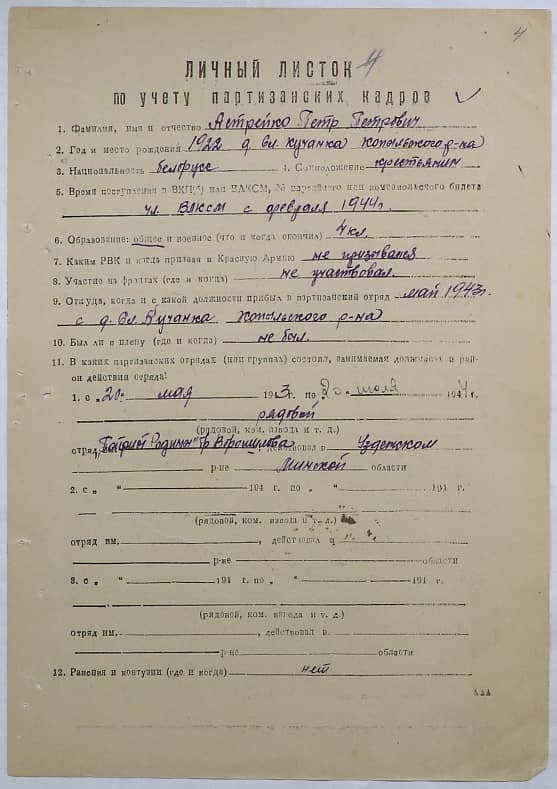 4
ЛИЧНЫЙ ЛИСТОК 4
по учету партизанских кадров
1. Фамилия, имя и отчество Астрейко Петр Петрович
2. Год и место рождения 1922 д. Вл. Кучанка Копыльского р-на
3. Национальность белорусс 4. Соцположение крестьянин
5. Время поступления в ВКП(б) или ВЛКСМ, № партийного или комсомольского билета
чл. ВЛКСМ с февраля 1944 г.
6. Образование: общее и военное (что и когда окончил) 4 кл.
7. Каким РВК и когда призван в Красную Армию не призывался
8. Участие на фронтах (где и когда) не участвовал.
9. Откуда, когда и с какой должности прибыл в партизанский отряд май 1943 г.
с д. Вл. Кучанка Копыльского р-на
10. Был ли в плену (где и когда) не был.
11. В каких партизанских отрядах (или группах) состоял, занимаемая должность и рай-
он действия отряда:
1. с „20" мая 1943 г. по „20" июля 1944 г.
рядовой
(рядовой, ком. взвода и т. д.)
отряд "Патриот Родины" бр Ворошилова, действовал в Узденском
р-не Минской области
2. с „ " 191 г. по „ " 191 г.
(рядовой, ком. взвода и т. д.)
отряд им. , действовал в
р-не области
3. с „ " 191 г. по „ " 191 г.
(рядовой, ком. взвода и т. д.)
отряд им. , действовал в
р-не области
12. Ранения и контузии (где и когда) нет